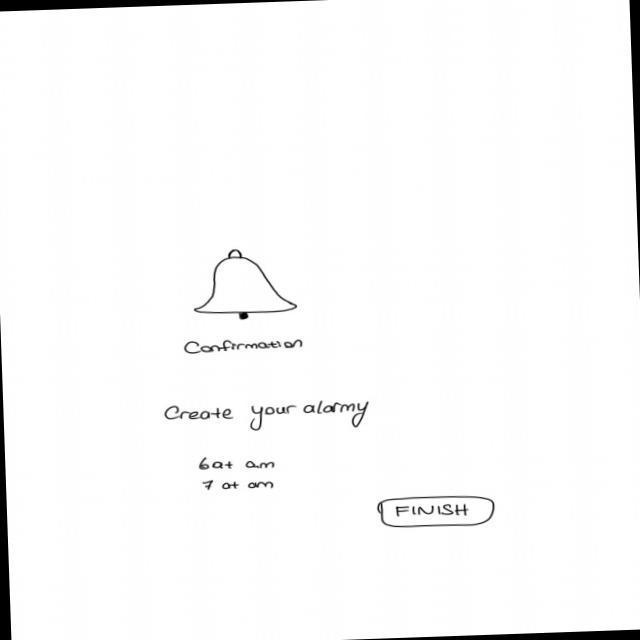 Confirmation
Create your alarmy
6 at am
7 at am
FINISH